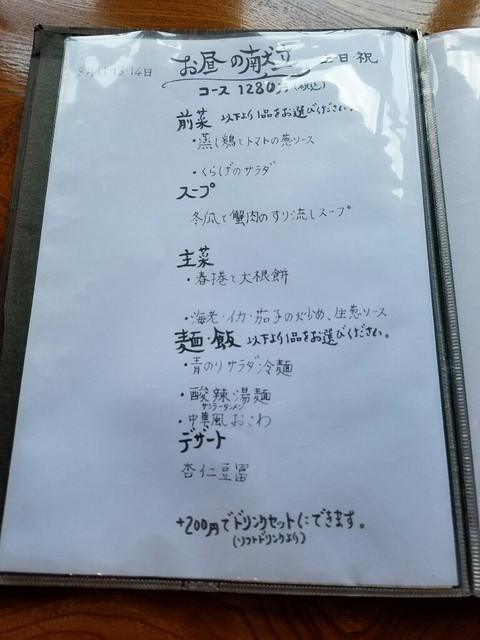 お昼の献立 土日祝
コース 1280円(税込)
前菜 以下より1品をお選びください。
・蒸し鶏とトマトの葱ソース
・くらげのサラダ
スープ
冬瓜と蟹肉のすり流しスープ
主菜
・春捲と大根餅
・海老・イカ・茄子の炒め、生葱ソース
麺・飯 以下より1品をお選びください。
・青のりサラダ冷麺
・酸辣湯麺
サンラータンメン
・中華風おこわ
デザート
杏仁豆冨
+200円でドリンクセットにできます。
(ソフトドリンクより)